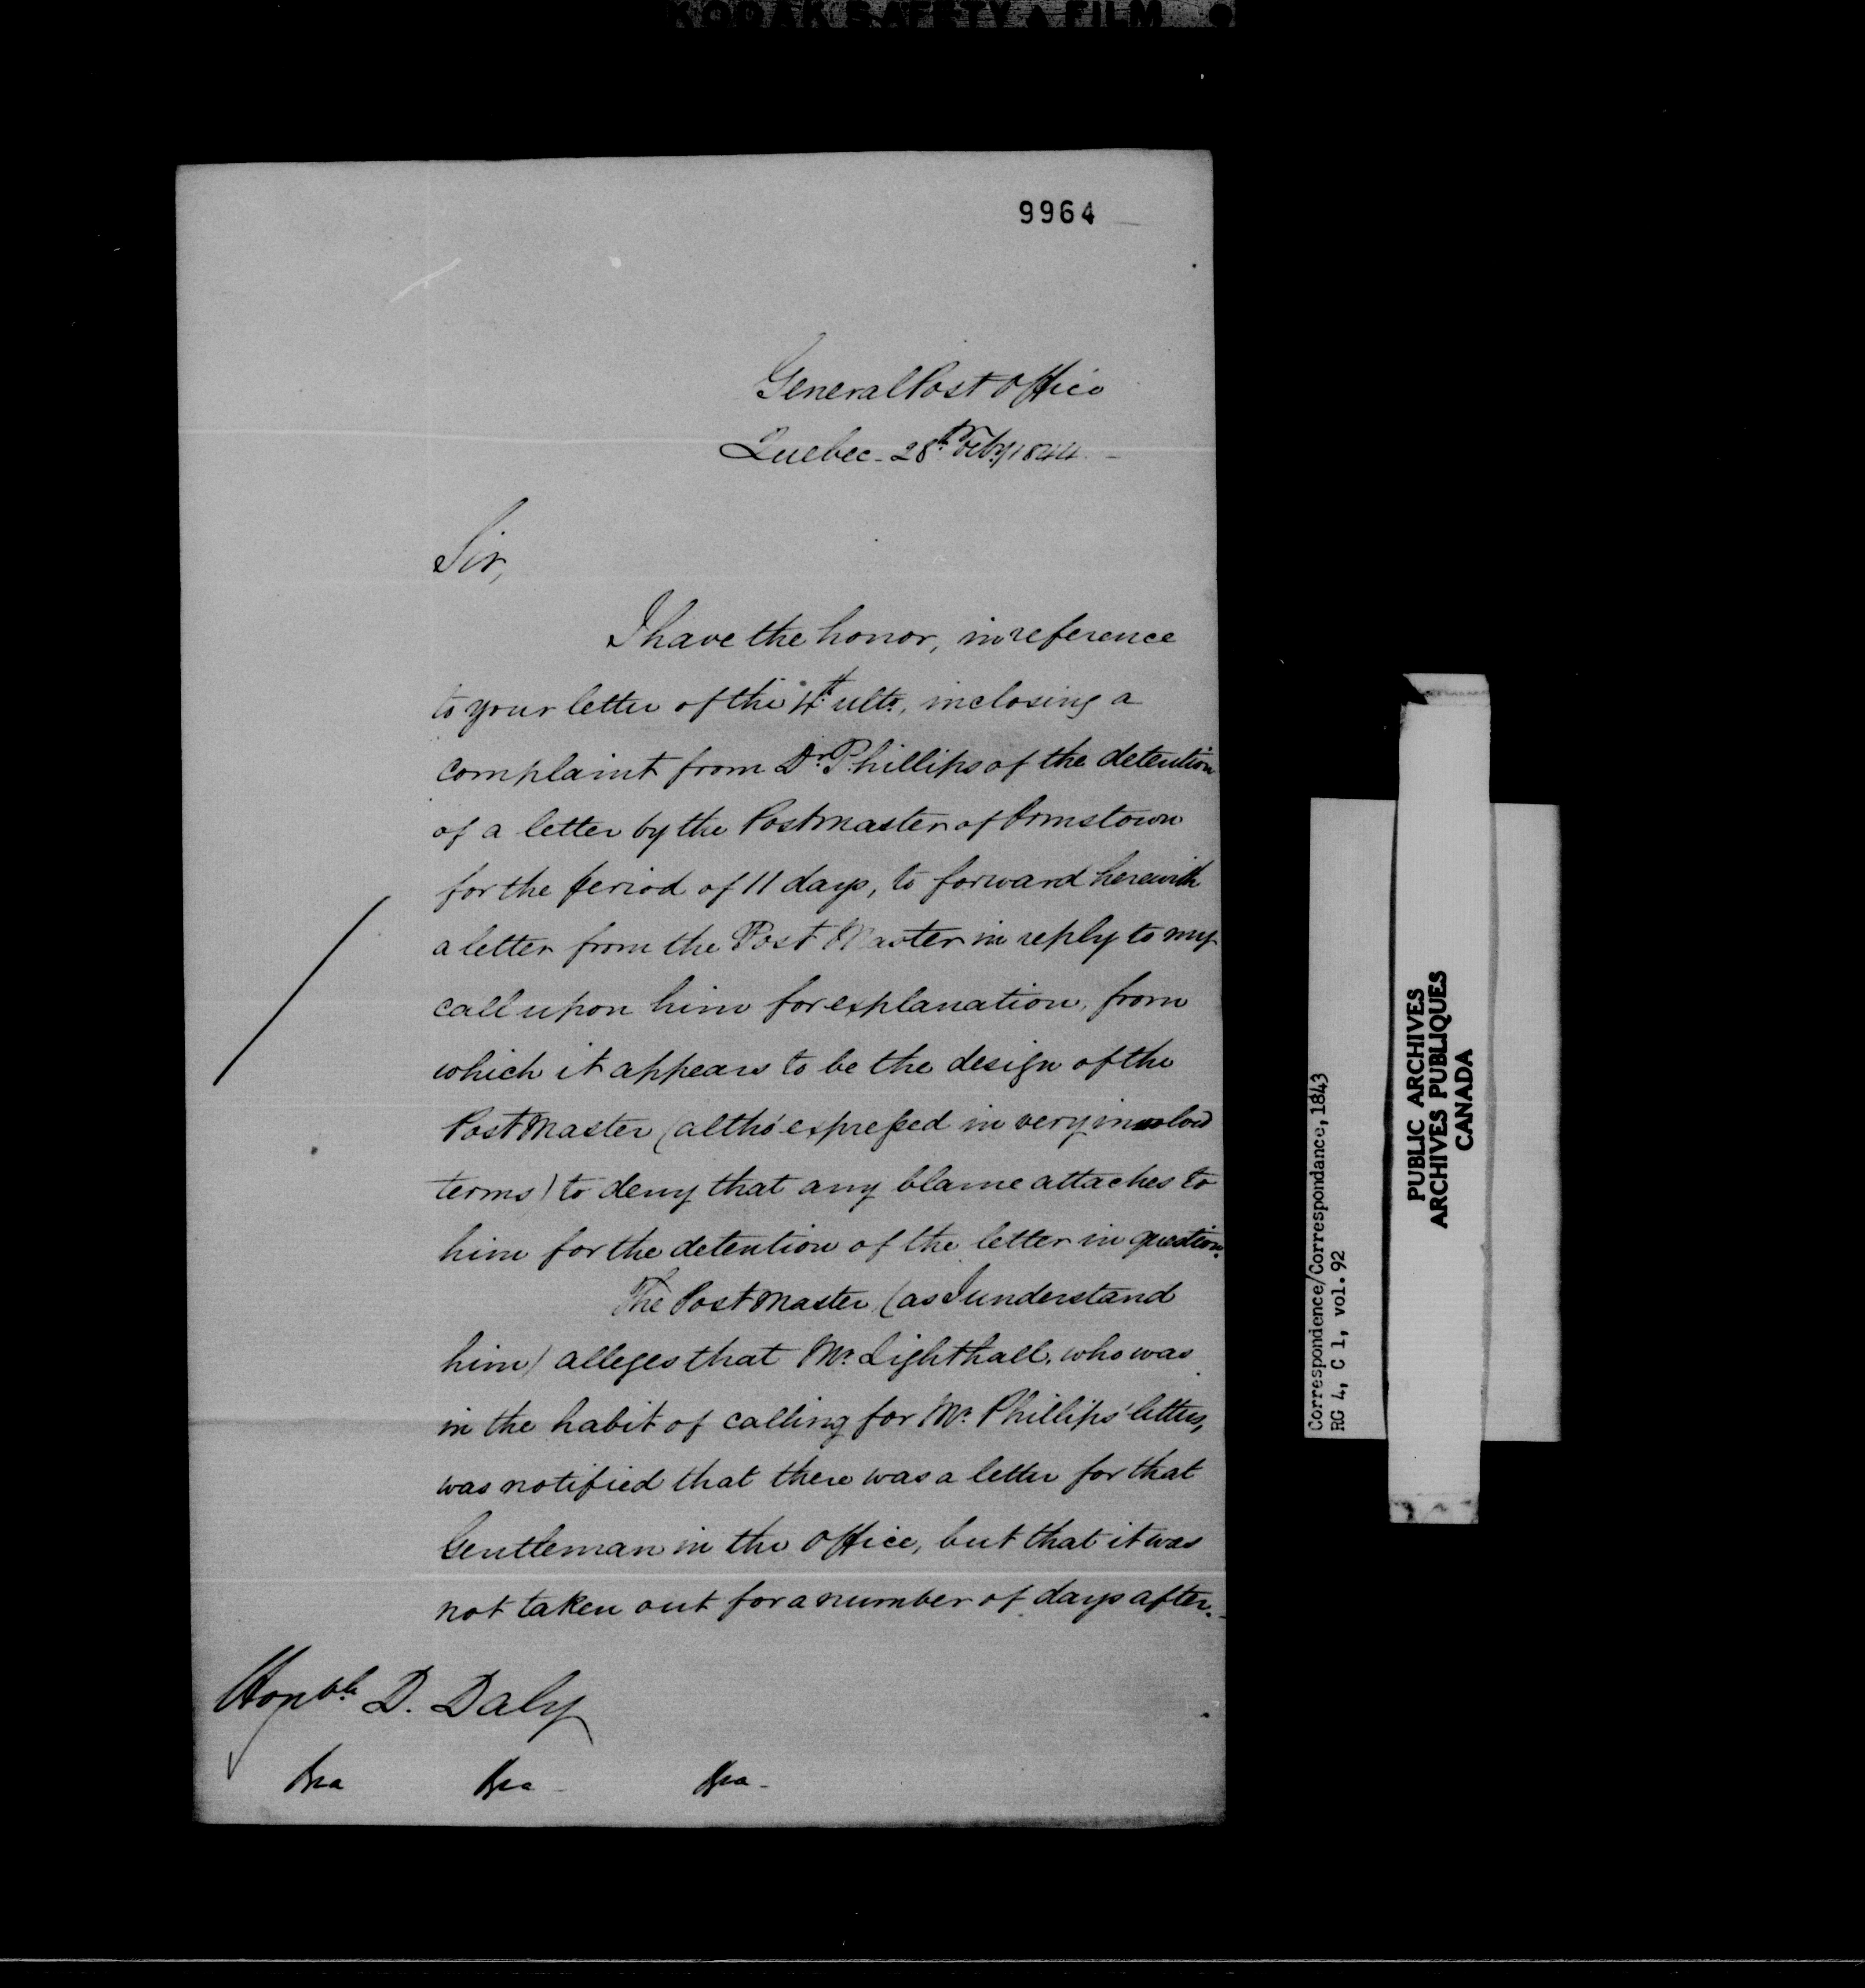 KODAK SAFETY FILM
9964
General Post Office
Quebec - 28th Feby 1844 -
Sir,
I have the honor, in reference
to your letter of the 4th ulto, inclosing a
complaint from Dr. Phillips of the detention
of a letter by the Postmaster of Ormstown
for the period of 11 days, to forward herewith
a letter from the Post Master in reply to my
call upon him for explanation, from
which it appears to be the design of the
Post Master (altho' expressed in very involved
terms) to deny that any blame attaches to
him for the detention of the letter in question.
The Post Master, (as I understand
him) alleges that Mr. Lighthall, who was
in the habit of calling for Mr. Phillips' letters,
was notified that there was a letter for that
Gentleman in the Office, but that it was
not taken out for a number of days after. -
Honble D. Daly
&ca &ca - &ca -
Correspondence/Correspondance, 1843
RG 4, C 1, vol. 92
PUBLIC ARCHIVES
ARCHIVES PUBLIQUES
CANADA